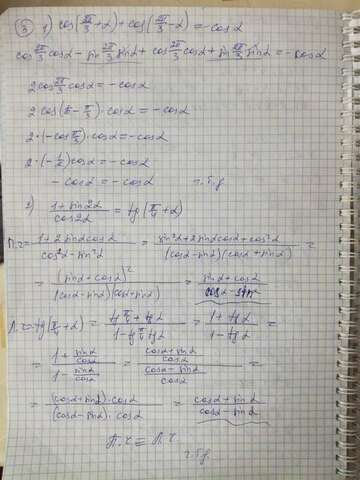 ③ 1) cos(2π/3 + α) + cos(2π/3 - α) = -cosα
cos 2π/3 cosα - sin 2π/3 sinα + cos 2π/3 cosα + sin 2π/3 sinα = -cosα
2cos 2π/3 cosα = -cosα
2cos(π - π/3) · cosα = -cosα
2·(-cos π/3)·cosα = -cosα
2·(-1/2)cosα = -cosα
-cosα = -cosα ч.т.д
2) (1 + sin2α)/(cos2α) = tg(π/4 + α)
П.ч = (1 + 2sinαcosα)/(cos²α - sin²α) = (sin²α + 2sinαcosα + cos²α)/((cosα - sinα)(cosα + sinα)) =
= (sinα + cosα)²/((cosα - sinα)(cosα + sinα)) = (sinα + cosα)/(cosα - sinα)
Л.ч = tg(π/4 + α) = (tg π/4 + tgα)/(1 - tg π/4 tgα) = (1 + tgα)/(1 - tgα) =
= (1 + sinα/cosα)/(1 - sinα/cosα) = ((cosα + sinα)/cosα)/((cosα - sinα)/cosα) =
= ((cosα + sinα)·cosα)/((cosα - sinα)·cosα) = (cosα + sinα)/(cosα - sinα)
П.ч = Л.ч
ч.т.д